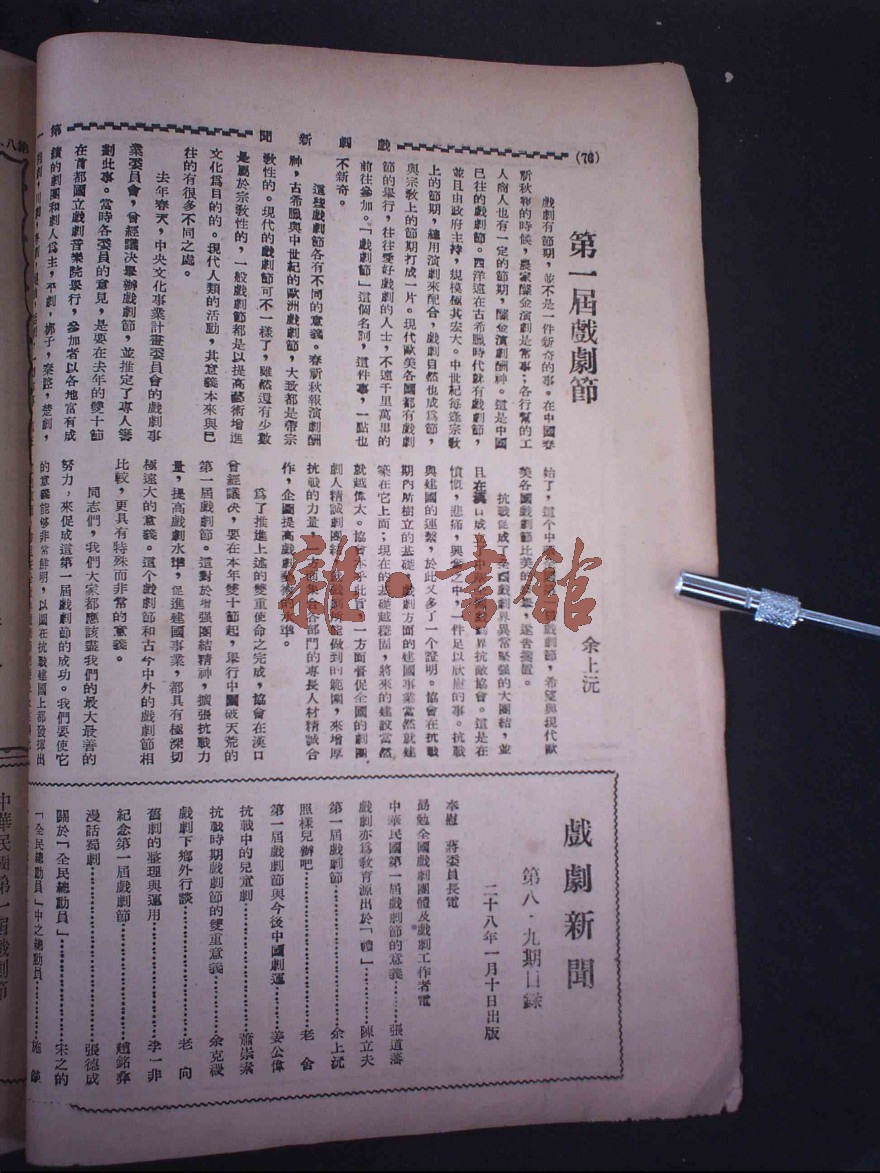 (76)
戲劇新聞
第一屆戲劇節
余上沅
戲劇有節期，並不是一件新奇的事。在中國春
祈秋報的時候，農家釀金演劇是常事；各行幫的工
人商人也有一定的節期，釀金演劇酬神。這是中國
已往的戲劇節。西洋遠在古希臘時代就有戲劇節，
並且由政府主持，規模極其宏大。中世紀每逢宗教
上的節期，總用演劇來配合，戲劇自然也成爲節，
與宗教上的節期打成一片。現代歐美各國都有戲劇
節的舉行，往往愛好戲劇的人士，不遠千里萬里的
前往參加。「戲劇節」這個名詞，這件事，一點也
不新奇。
這些戲劇節各有不同的意義。春祈秋報演劇酬
神，古希臘與中世紀的歐洲戲劇節，大致都是帶宗
教性的。現代的戲劇節可不一樣了，雖然還有少數
是屬於宗教性的，一般戲劇節都是以提高藝術增進
文化爲目的的。現代人類的活動，其意義本來與已
往的有很多不同之處。
去年春天，中央文化事業計畫委員會的戲劇事
業委員會，曾經議决舉辦戲劇節，並推定了專人籌
劃此事。當時各委員的意見，是要在去年的雙十節
在首都國立戲劇音樂院舉行，參加者以各地富有成
績的劇團和劇人爲主，平劇，梆子，秦腔，楚劇，
始了，這个中 戲劇節，希望與現代歐
美各國戲劇節比美的 ，遂告擱置。
抗戰促成了全國戲劇界異常堅强的大團結，並
且在漢口成立了中華全國戲劇界抗敵協會。這是在
憤慨，悲痛，興奮之中，一件足以欣慰的事。抗戰
與建國的連繫，於此又多了一个證明。協會在抗戰
期內所樹立的基礎，戲劇方面的建國事業當然就建
築在它上面；現在的基礎越穩固，將來的建設當然
就越偉大。協會本乎此旨，一方面督促全國的劇團
劇人精誠團結，在戲劇所能做到的範圍，來增厚
抗戰的力量，一方面集合各部門的專長人材精誠合
作，企圖提高戲劇藝術的水準。
爲了推進上述的雙重使命之完成，協會在漢口
曾經議决，要在本年雙十節起，舉行中國破天荒的
第一屆戲劇節。這對於增强團結精神，擴張抗戰力
量，提高戲劇水準，促進建國事業，都具有極深切
極遠大的意義。這个戲劇節和古今中外的戲劇節相
比較，更具有特殊而非常的意義。
同志們，我們大家都應該盡我們的最大最善的
努力，來促成這第一屆戲劇節的成功。我們要使它
的意義能够非常鮮明，以圖在抗戰建國上都發揮出
戲劇新聞
第八·九期目錄
二十八年一月十日出版
奉慰 蔣委員長電
勗勉全國戲劇團體及戲劇工作者電
中華民國第一屆戲劇節的意義……張道藩
戲劇亦爲教育源出於「禮」……陳立夫
第一屆戲劇節……余上沅
照樣兒辦吧……老舍
第一屆戲劇節與今後中國劇運……姜公偉
抗戰中的兒童劇……蕭崇素
抗戰時期戲劇節的雙重意義……余克稷
戲劇下鄉外行談……老向
舊劇的整理與運用……李一非
紀念第一屆戲劇節……趙銘彝
漫話蜀劇……張德成
關於「全民總動員」……宋之的
「全民總動員」中之總動員……施
中華民國第一屆戲劇節
雜·書館